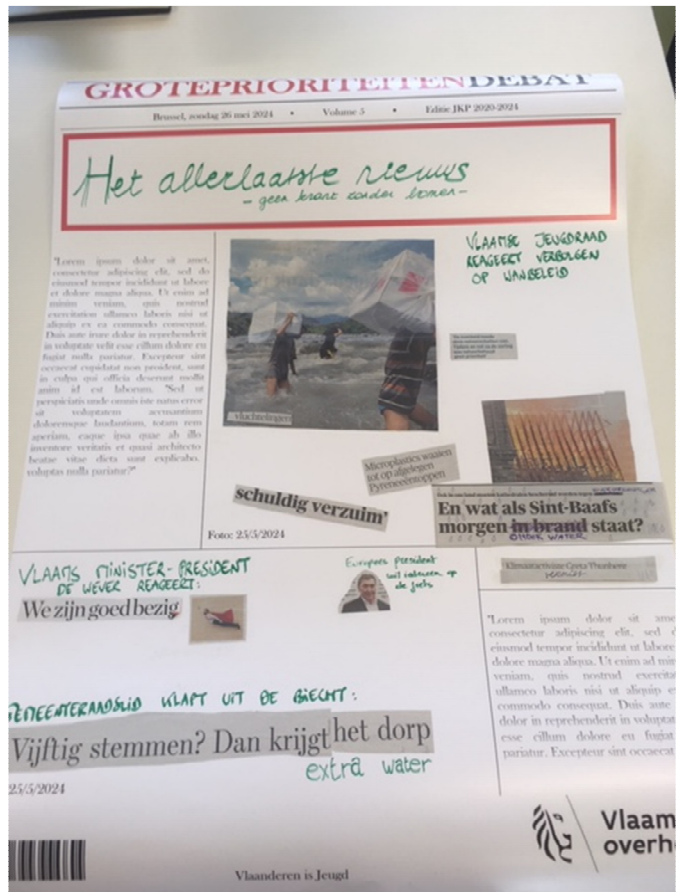 GROTEPRIORITEITENDEBAT
Brussel, zondag 26 mei 2024 • Volume 5 • Editie JKP 2020-2024
Het allerlaatste nieuws
- geen krant zonder bomen -
"Lorem ipsum dolor sit amet,
consectetur adipiscing elit, sed do
eiusmod tempor incididunt ut labore
et dolore magna aliqua. Ut enim ad
minim veniam, quis nostrud
exercitation ullamco laboris nisi ut
aliquip ex ea commodo consequat.
Duis aute irure dolor in reprehenderit
in voluptate velit esse cillum dolore eu
fugiat nulla pariatur. Excepteur sint
occaecat cupidatat non proident, sunt
in culpa qui officia deserunt mollit
anim id est laborum. "Sed ut
perspiciatis unde omnis iste natus error
sit voluptatem accusantium
doloremque laudantium, totam rem
aperiam, eaque ipsa quae ab illo
inventore veritatis et quasi architecto
beatae vitae dicta sunt explicabo.
voluptas nulla pariatur?"
vluchtelingen
VLAAMSE JEUGDRAAD
REAGEERT VERBOLGEN
OP WANBELEID
Microplastics waaien
tot op afgelegen
Pyreneeëntoppen
schuldig verzuim'
Foto: 25/5/2024
En wat als Sint-Baafs
morgen in brand staat?
ONDER WATER
Klimaatactiviste Greta Thunberg
VLAAMS MINISTER-PRESIDENT
DE WEVER REAGEERT:
We zijn goed bezig
Europees president
wil inzetten op
de fiets
GEMEENTERAADSLID KLAPT UIT DE BIECHT:
Vijftig stemmen? Dan krijgt het dorp
extra water
25/5/2024
"Lorem ipsum dolor sit ame
consectetur adipiscing elit, sed d
eiusmod tempor incididunt ut labore
dolore magna aliqua. Ut enim ad mi
veniam, quis nostrud exercita
ullamco laboris nisi ut aliquip e
commodo consequat. Duis aute
dolor in reprehenderit in voluptat
esse cillum dolore eu fugiat
pariatur. Excepteur sint occaecat
Vlaam
overh
Vlaanderen is Jeugd